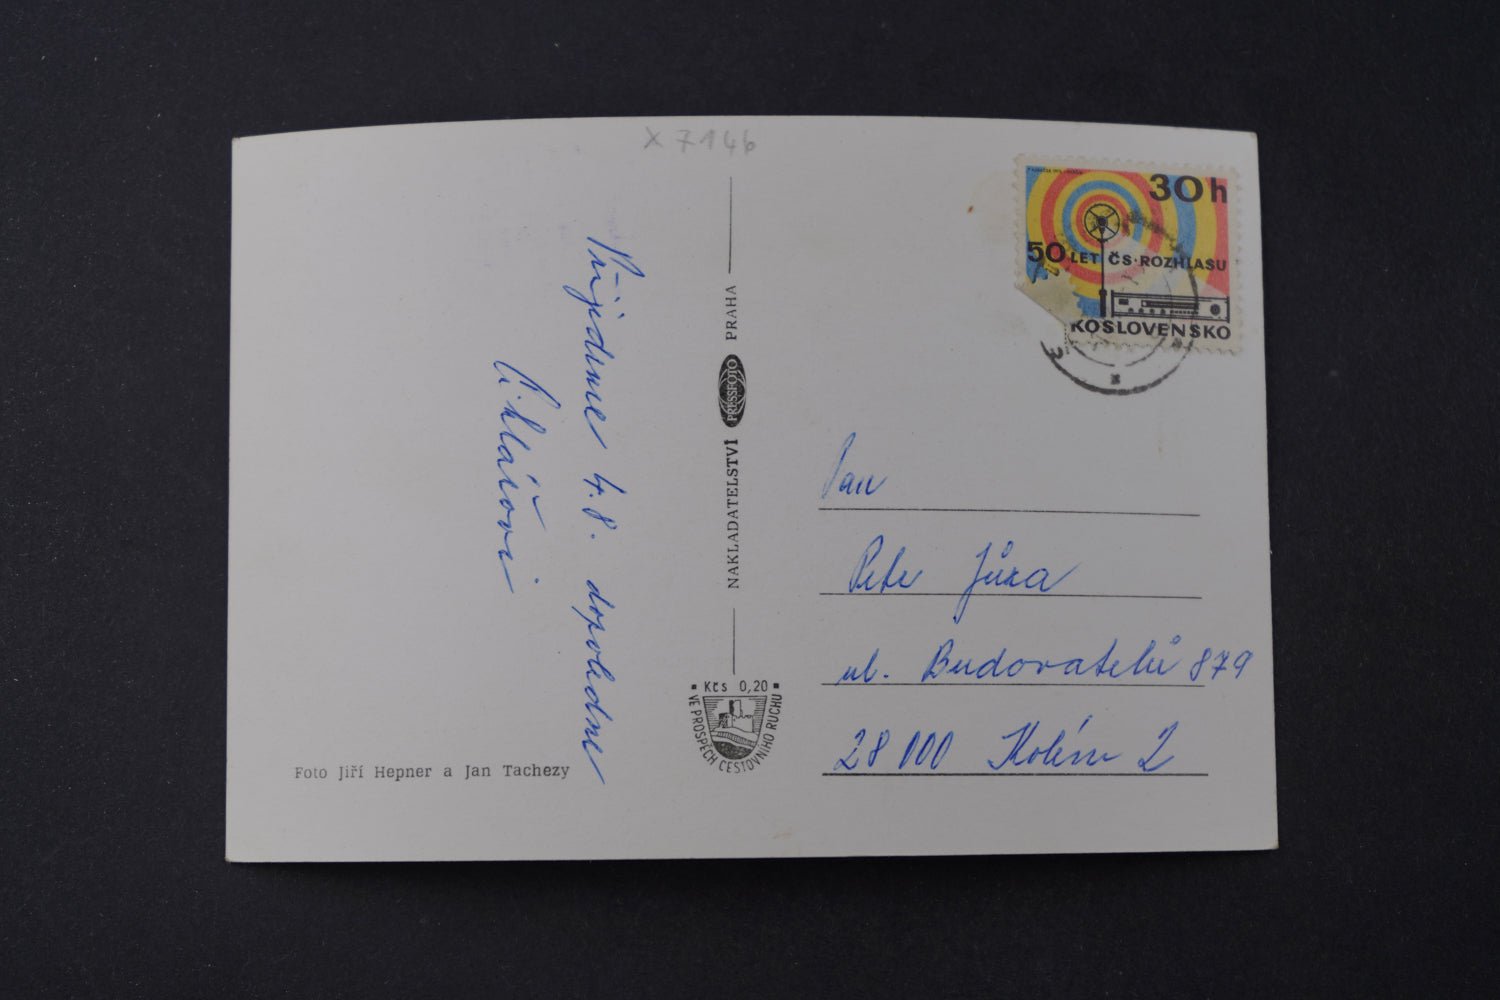 X 7146
Přijdeme 4.8. dopoledne
Cihlářovi
Foto Jiří Hepner a Jan Tachezy
NAKLADATELSTVÍ PRESSFOTO PRAHA
Kčs 0,20
VE PROSPĚCH CESTOVNÍHO RUCHU
30h
50 LET ČS·ROZHLASU
KOSLOVENSKO
3
Pan
Petr Jůza
ul. Budovatelů 879
28 000 Kolín 2